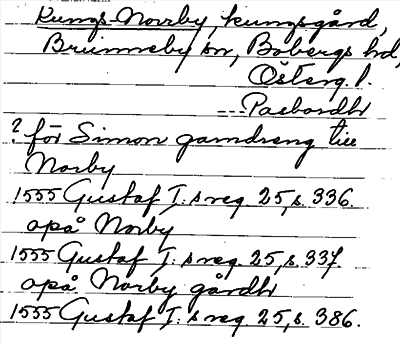 Kungs-Norrby, kungsgård,
Brunneby sn, Bobergs hd,
Österg. l.
Pasbordh
? för Simon gamdreng till
Norby
1555 Gustaf I:s reg. 25, s. 336.
apå Norby
1555 Gustaf I:s reg. 25, s. 337.
apå Norby gårdh
1555 Gustaf I:s reg. 25, s. 386.